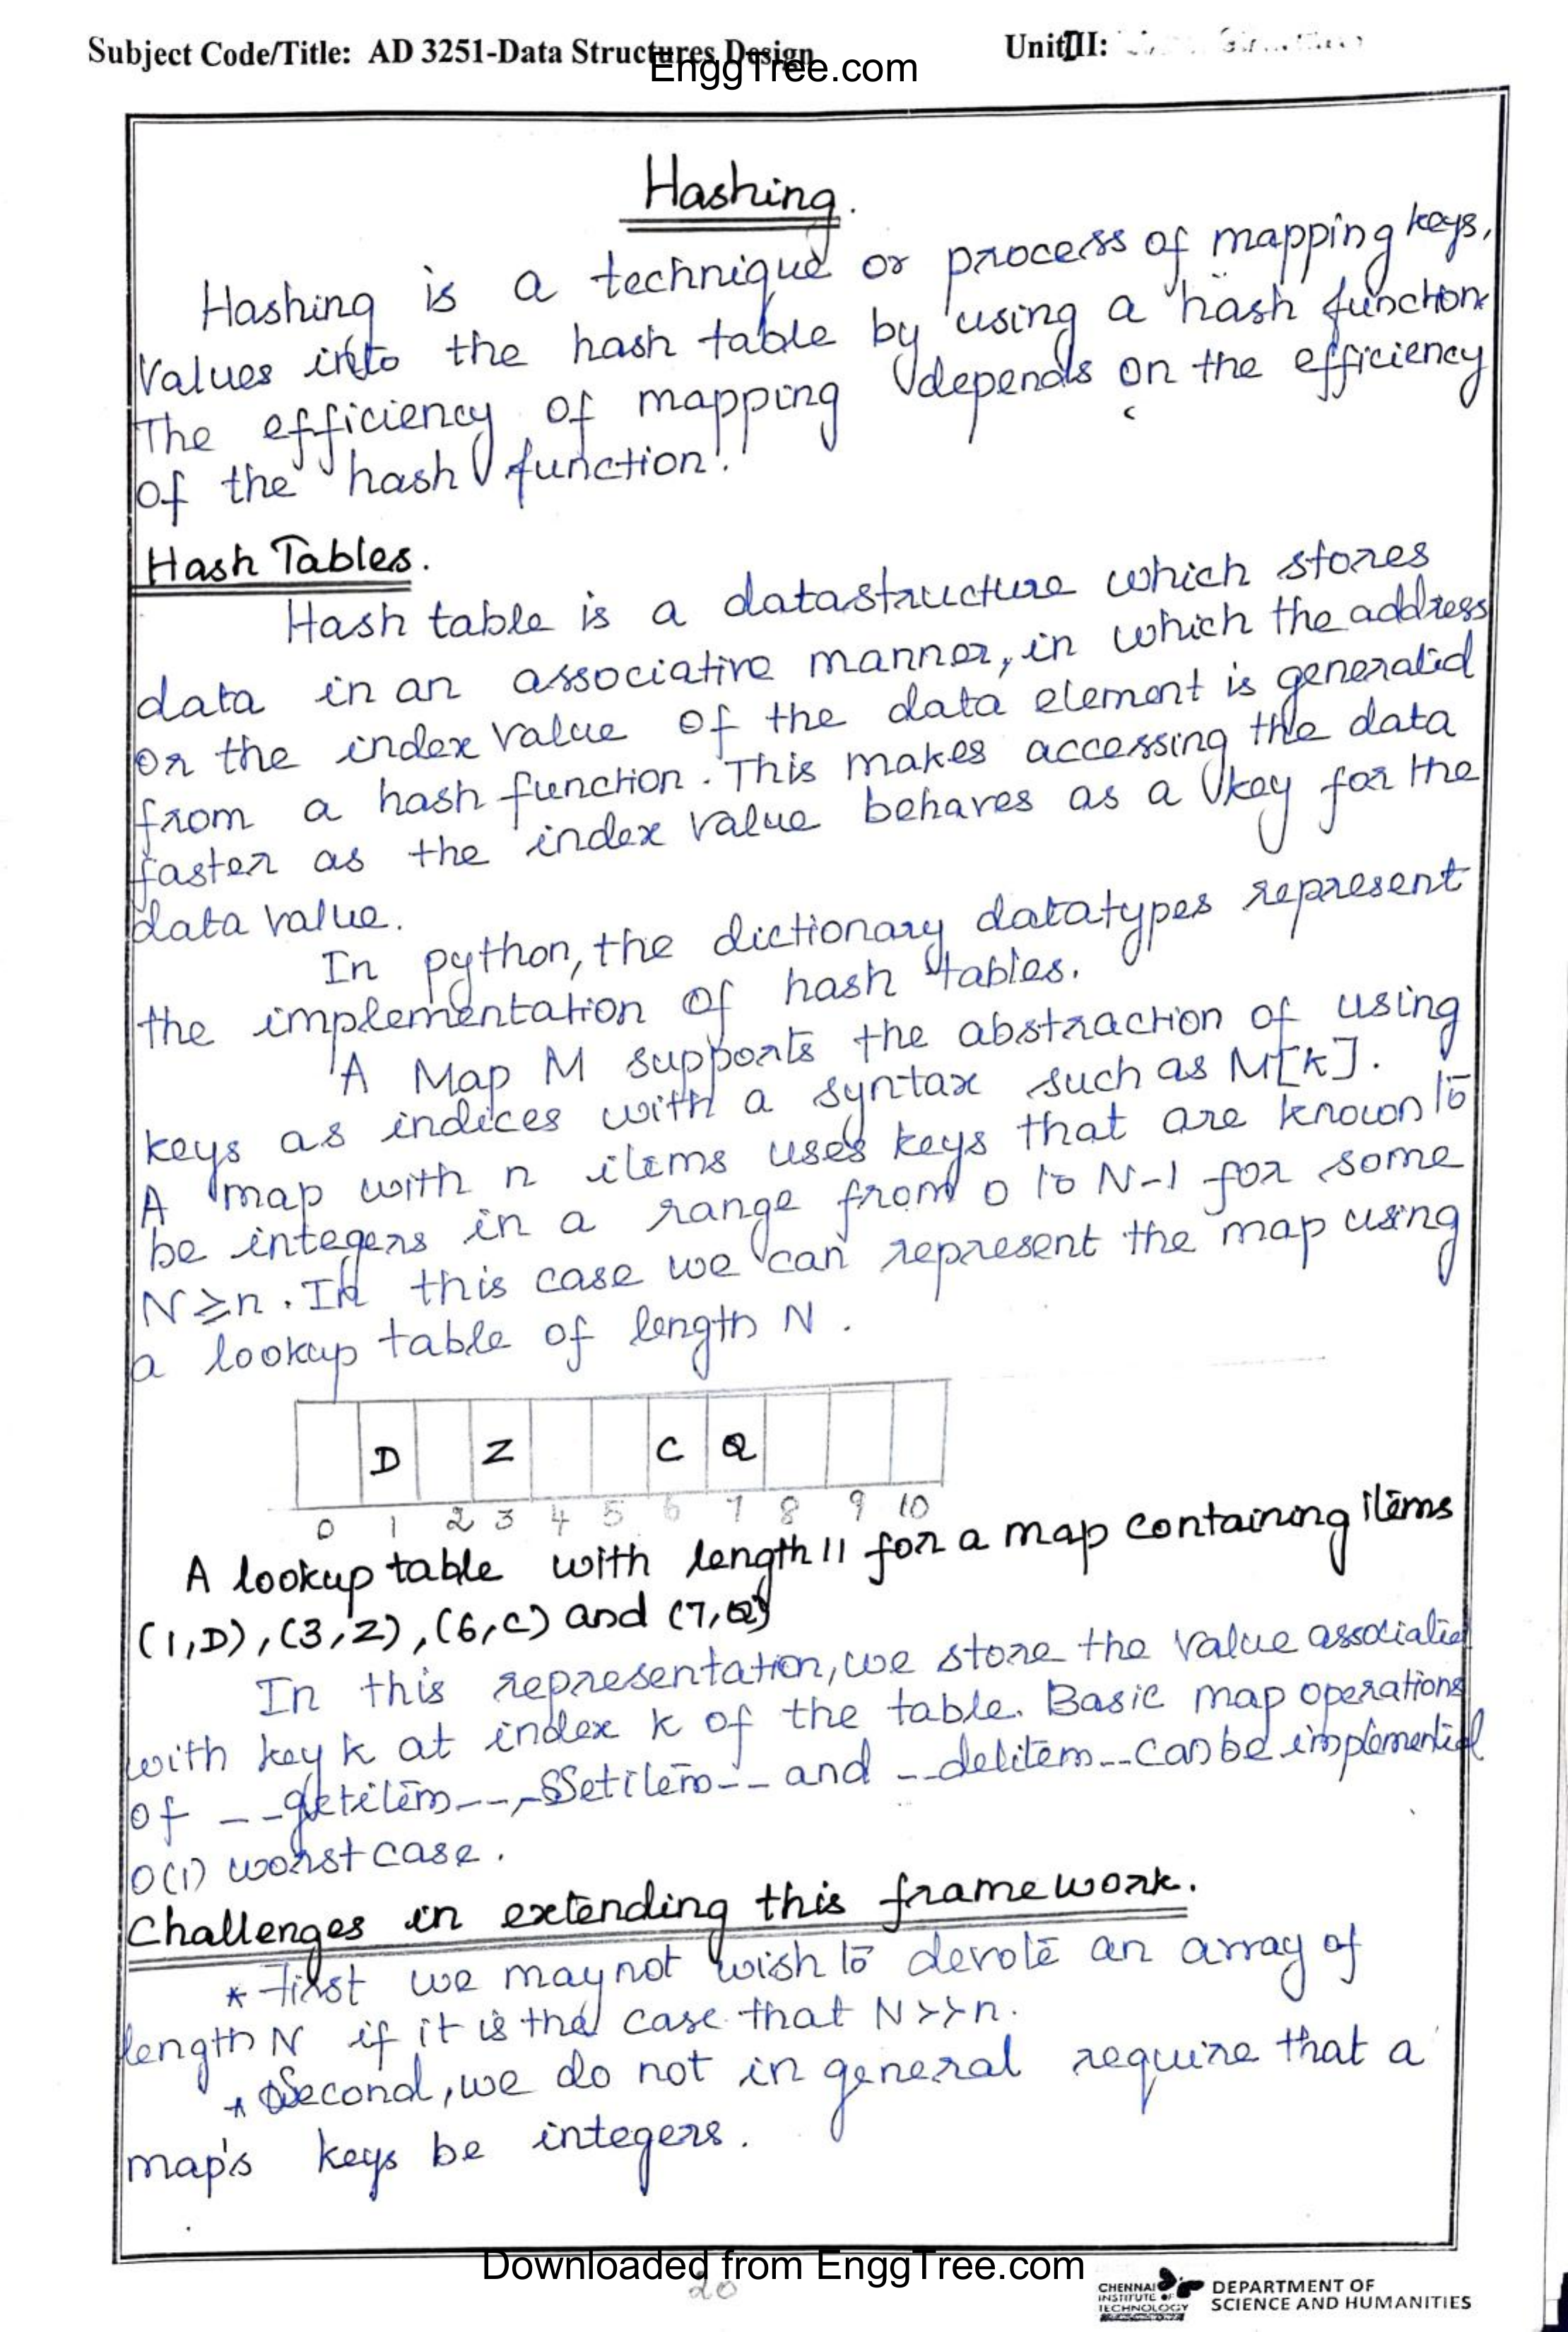 Subject Code/Title: AD 3251-Data Structures Design
UnitIII:
EnggTree.com
Hashing.
Hashing is a technique or process of mapping keys,
Values into the hash table by using a hash function
The efficiency of mapping depends on the efficiency
of the hash function.
Hash Tables.
Hash table is a datastructure which stores
data in an associative manner, in which the address
or the index value of the data element is generated
from a hash function. This makes accessing the data
faster as the index value behaves as a key for the
data value.
In python, the dictionary datatypes represent
the implementation of hash tables.
A Map M supports the abstraction of using
keys as indices with a syntax such as M[k].
A map with n items uses keys that are known to
be integers in a range from 0 to N-1 for some
N≥n. In this case we can represent the map using
a lookup table of length N.
D Z C Q
0 1 2 3 4 5 6 7 8 9 10
A lookup table with length 11 for a map containing items
(1,D), (3,Z), (6,C) and (7,Q)
In this representation, we store the value associated
with key k at index k of the table. Basic map operations
of __getitem__, __Setitem__ and __delitem__ can be implemented
O(1) worst case.
Challenges in extending this framework.
* First we may not wish to devote an array of
length N if it is the case that N>>n.
* Second, we do not in general require that a
map's keys be integers.
Downloaded from EnggTree.com
20
CHENNAI
INSTITUTE OF
TECHNOLOGY
DEPARTMENT OF
SCIENCE AND HUMANITIES